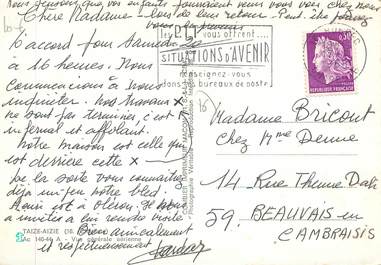 Nous pensons que vos enfants fourniront à vous chez nous
Chère Madame - lors de leur retour. Peut-être
D'accord pour Samedi
à 16 heures. Nous
commencions à nous
inquiéter. Nos travaux
ne sont pas terminés, c'est
infernal et affolant.
Notre maison est celle qui
est derrière cette x
de la sorte vous connaîtrez
déjà un peu notre bled.
Henri est à Oléron. Il nous
a invités à lui rendre visite
Bien amicalement
et respectueusement
les PTT vous offrent...
SITUATIONS d'AVENIR
renseignez-vous
dans les bureaux de poste
0,30
REPUBLIQUE FRANÇAISE
Madame Bricout
chez Mme Denne
14 Rue
59. BEAUVAIS en
CAMBRAISIS
TAIZE-AIZIE (16.
Ac 140-46 A - Vue générale aérienne